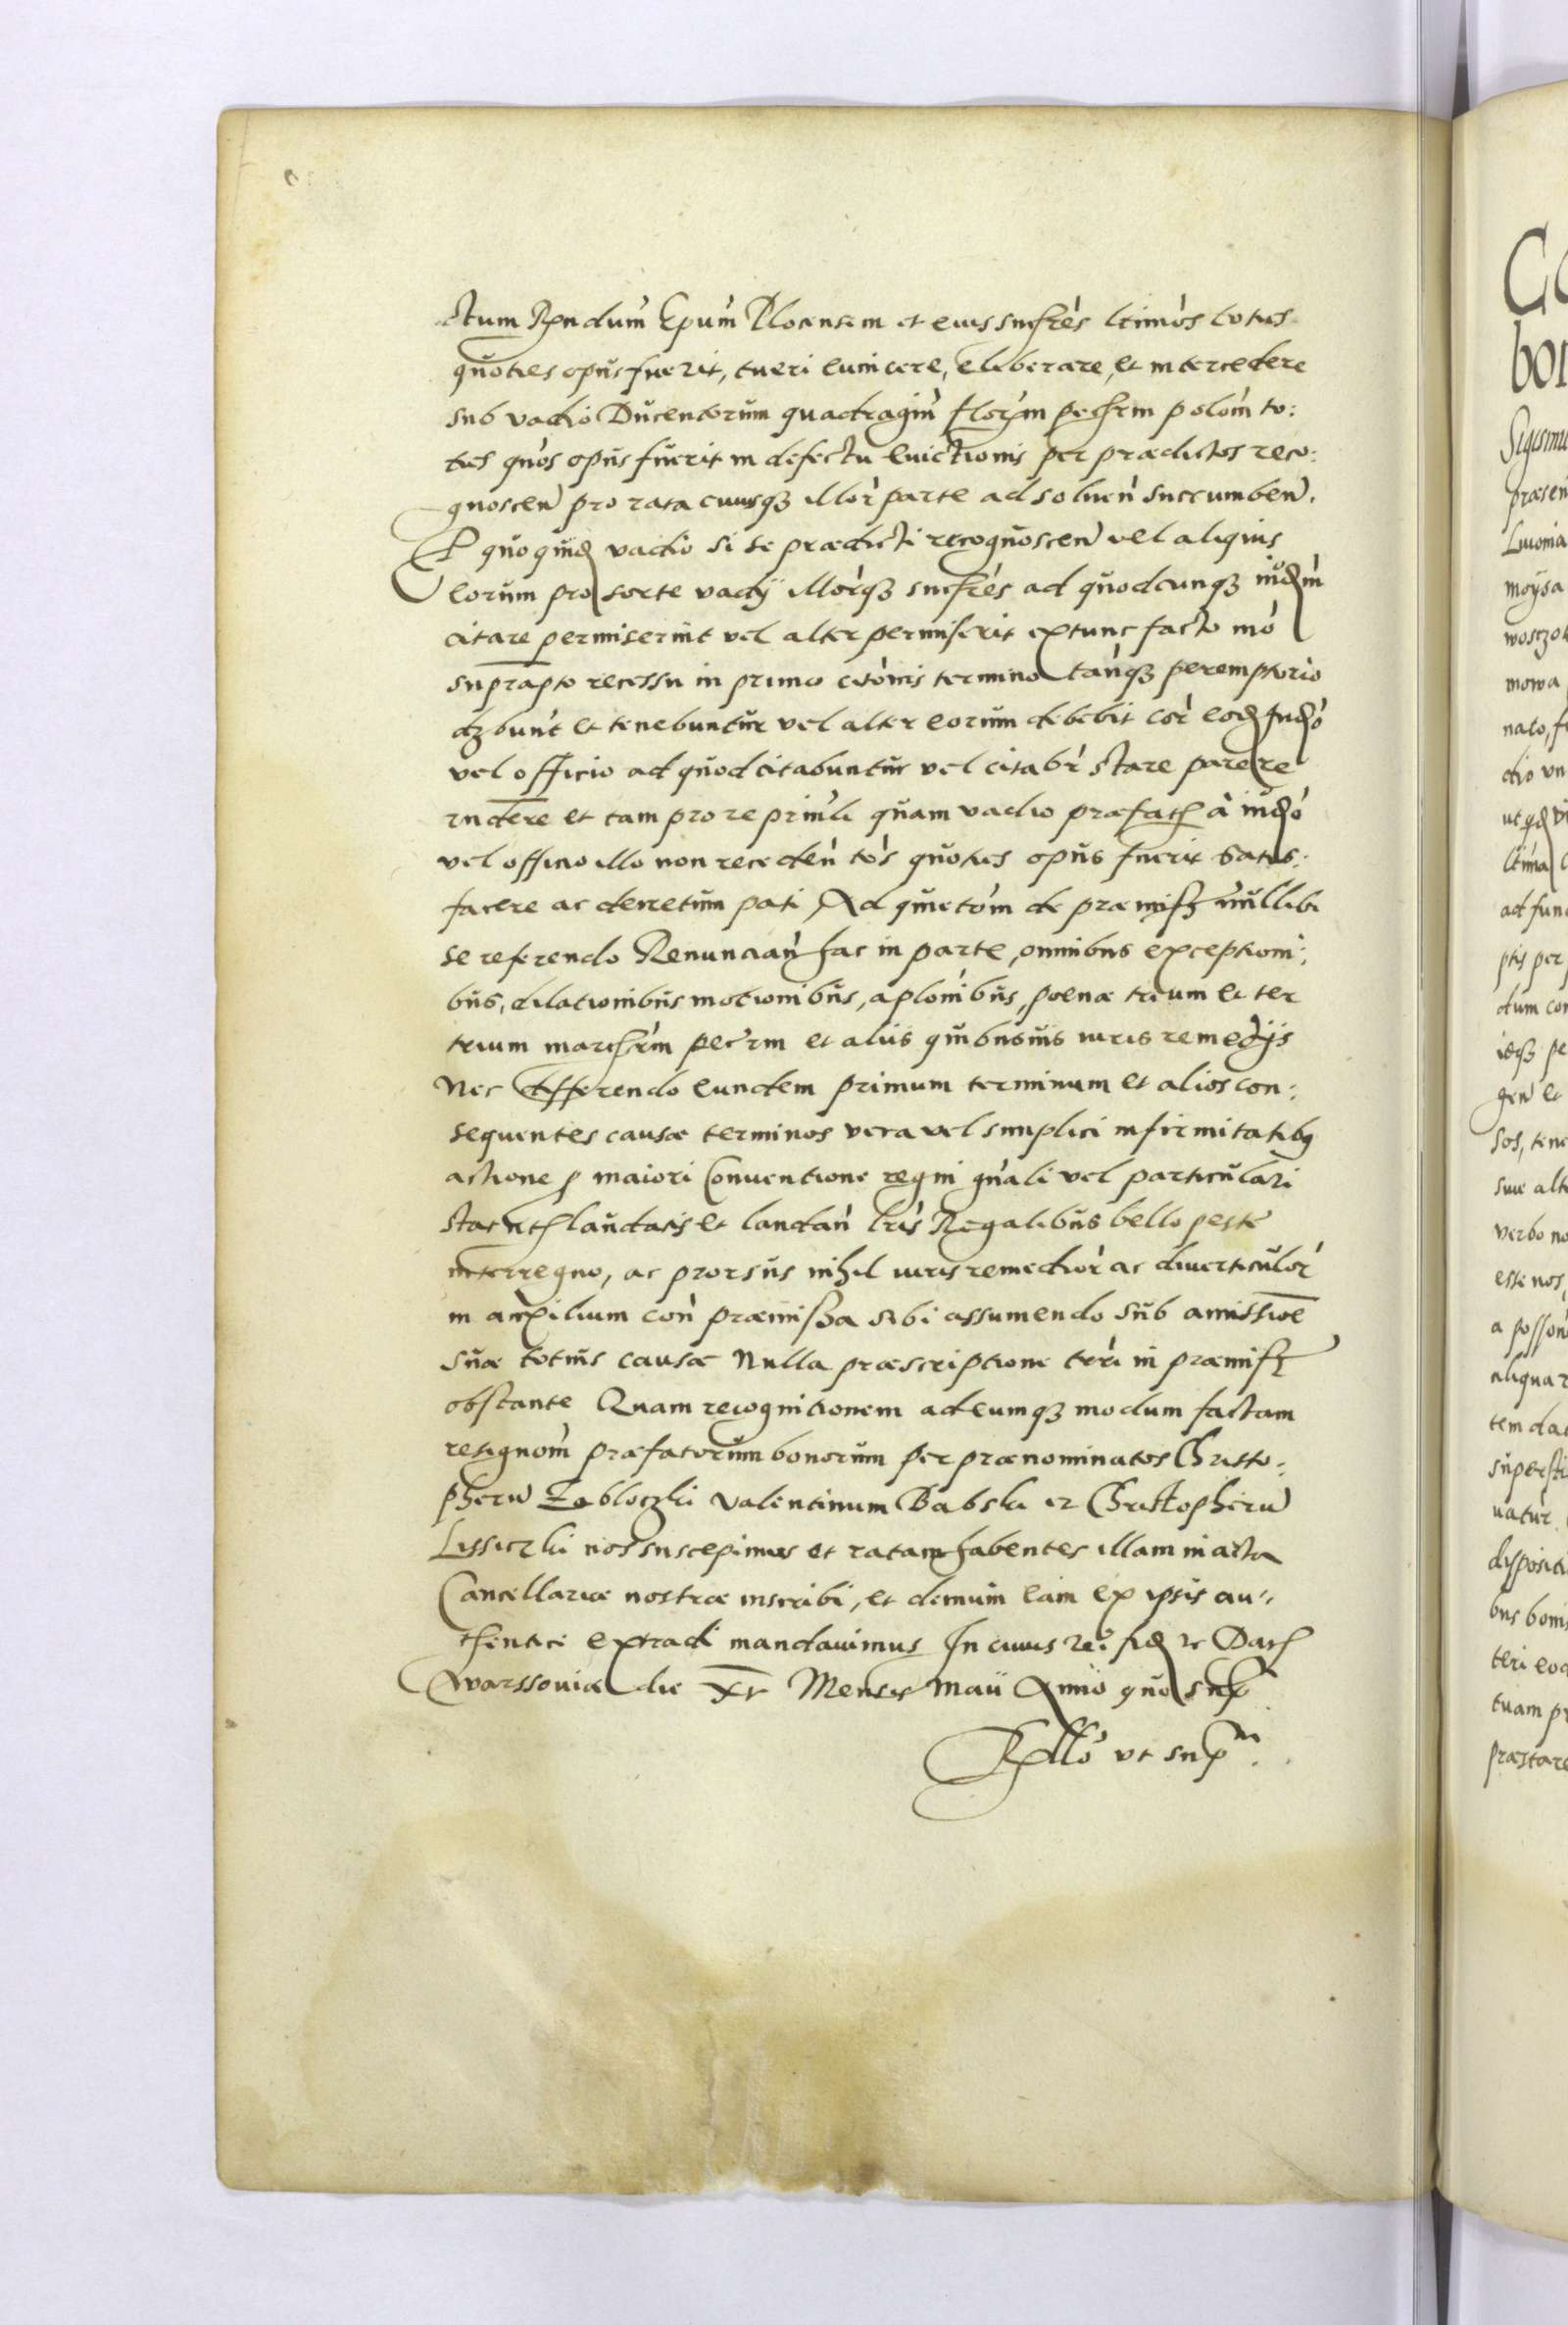 ctum Rṃdum Epum Plocensem et eius succres ltimos toties
quoties opus fuerit, tueri euincere, eliberare, et intercedere
sub vadio Ducentorum quadragin florim pecḥrm polom to:
ties quos opus fuerit in defectu euictionis per praedictos reco:
gnoscen pro rata cuiusq3 illor parte ad soluen succumben.
P quo quid vadio si se praedicti recognoscen vel aliquis
eorum pro sorte vadij illorq3 succres ad quodcunq3 iudm
citare permiserint vel alter permiserit extunc facto mo
suprapto recessu in primo citonis termino tanq3 peremptorio
db3bunt et tenebuntur vel alter eorum debebit cor eod Judo
vel officio ad quod citabuntur vel citabr stare parere
rndere et tam pro re prinli quam vadio praefat a iudo
vel officio illo non receden tos quoties opus fuerit satis:
facere ac decretum pati Ad quietom de praemiss nullibi
se referendo Renuncian hac in parte, omnibus exceptioni:
bus, dilationibus motionibus, aplonibus, poenae trium et ter
trium marcḥrm pecrm et aliis quibusuis iuris remedijs
Nec differendo eundem primum terminum et alios con:
sequentes causae terminos vera vel simplici infirmitatibq
actione p maiori Conuentione regni gnali vel particulari
laudatis et laudan lris Regalibus bello peste
interregno, ac prorsus nihil iuris remedior ac diuerticulor
in auxilium con praemissa sibi assumendo sub amissioe
suae totius causae Nulla praescriptione terri in praemiss
obstante Quam recognitionem ad eumq3 modum factam
resignom praefatorum bonorum per praenominatos Christo:
pheru Zabloczki Valentinum Babski et Christopheru
Lissiczki nos suscepimus et ratam habentes illam in acta
Cancellariae nostrae inscribi, et demum eam ex ipsis au:
thentice extradi mandauimus In cuius rei fid etc Dat
Warssouiae die XV Mensis Maii Anno quo sup
Rello ut supra
Co
bon
Sigismu
praesen
Liuonia
moysa
wosczo
mowa
nato, f
dio vn
ut qd
ltima
ad fun
ptis per
dum con
ieq3 pe
gen et
sos, tene
siue alt
verbo no
esse nos
a posson
aliqua r
tem da
supersti
uatur
dispositi
bus bonis
teri eod
tuam p
praestare